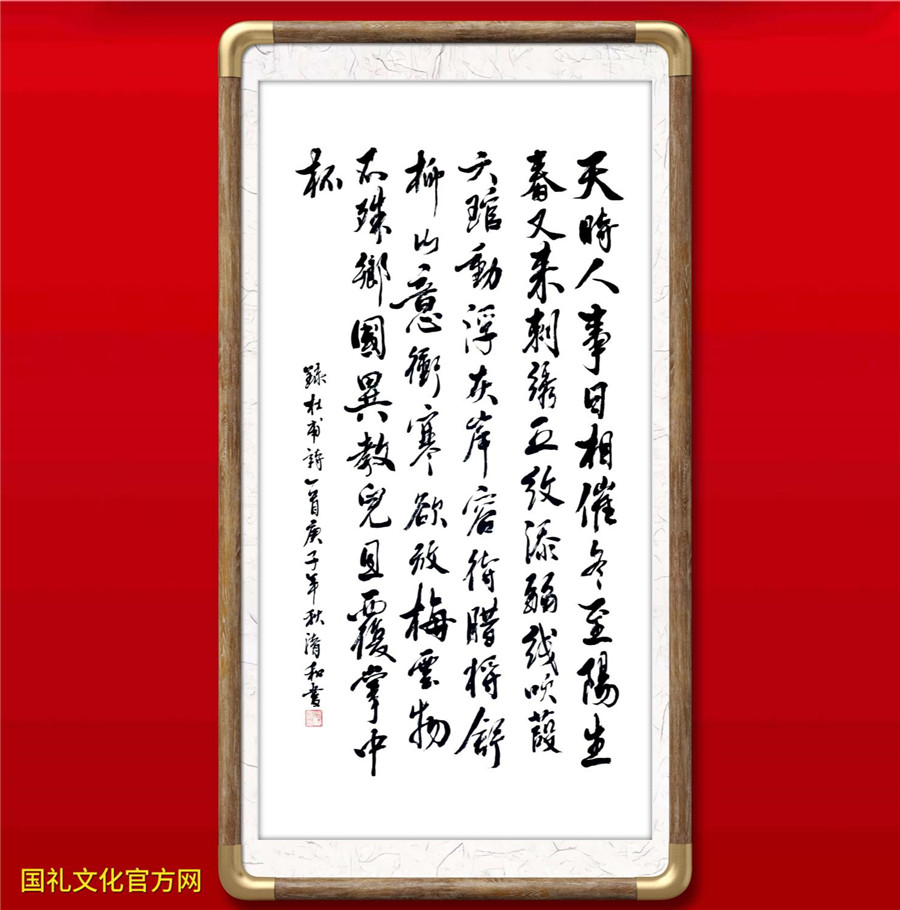 天時人事日相催冬至陽生
春又来刺綉五纹添弱线吹葭
六琯動浮灰岸容待腊將舒
柳山意衝寒欲放梅雲物
不殊鄉國異教兒且覆掌中
杯
錄杜甫詩一首庚子年秋和書
国礼文化官方网